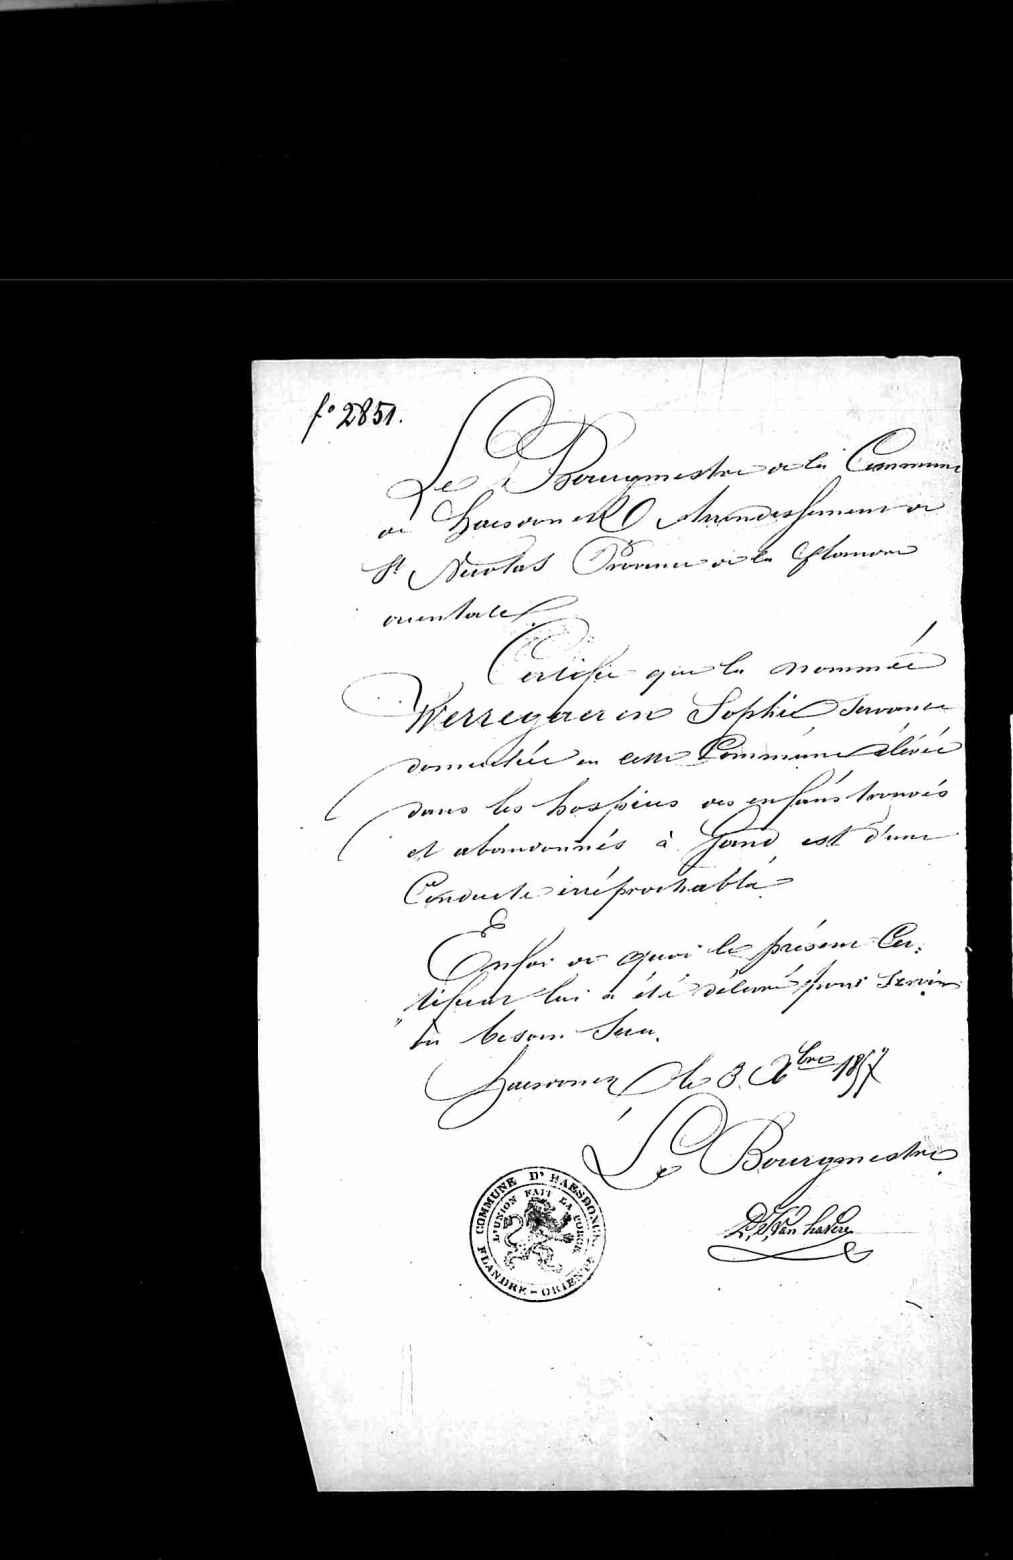 f° 2851.
Le Bourgmestre de la Commune
de Haesdonck Arrondissement de
St Nicolas Province de la Flandre
orientale
Certifie que la nommée
Werregaeren Sophie Servante
domiciliée en cette Commune élévée
dans les hospices des enfans trouvés
et abandonnés à Gand est d'une
Conduite irréprochable.
Enfoi de quoi le présent Cer:
"tificat lui a été délivré pour servir
au besoin sera.
Haesdonck le 3 Xbre 1857
Le Bourgmestre
Van havere
COMMUNE D'HAESDONCK
L'UNION FAIT LA FORCE
FLANDRE-ORIENTE